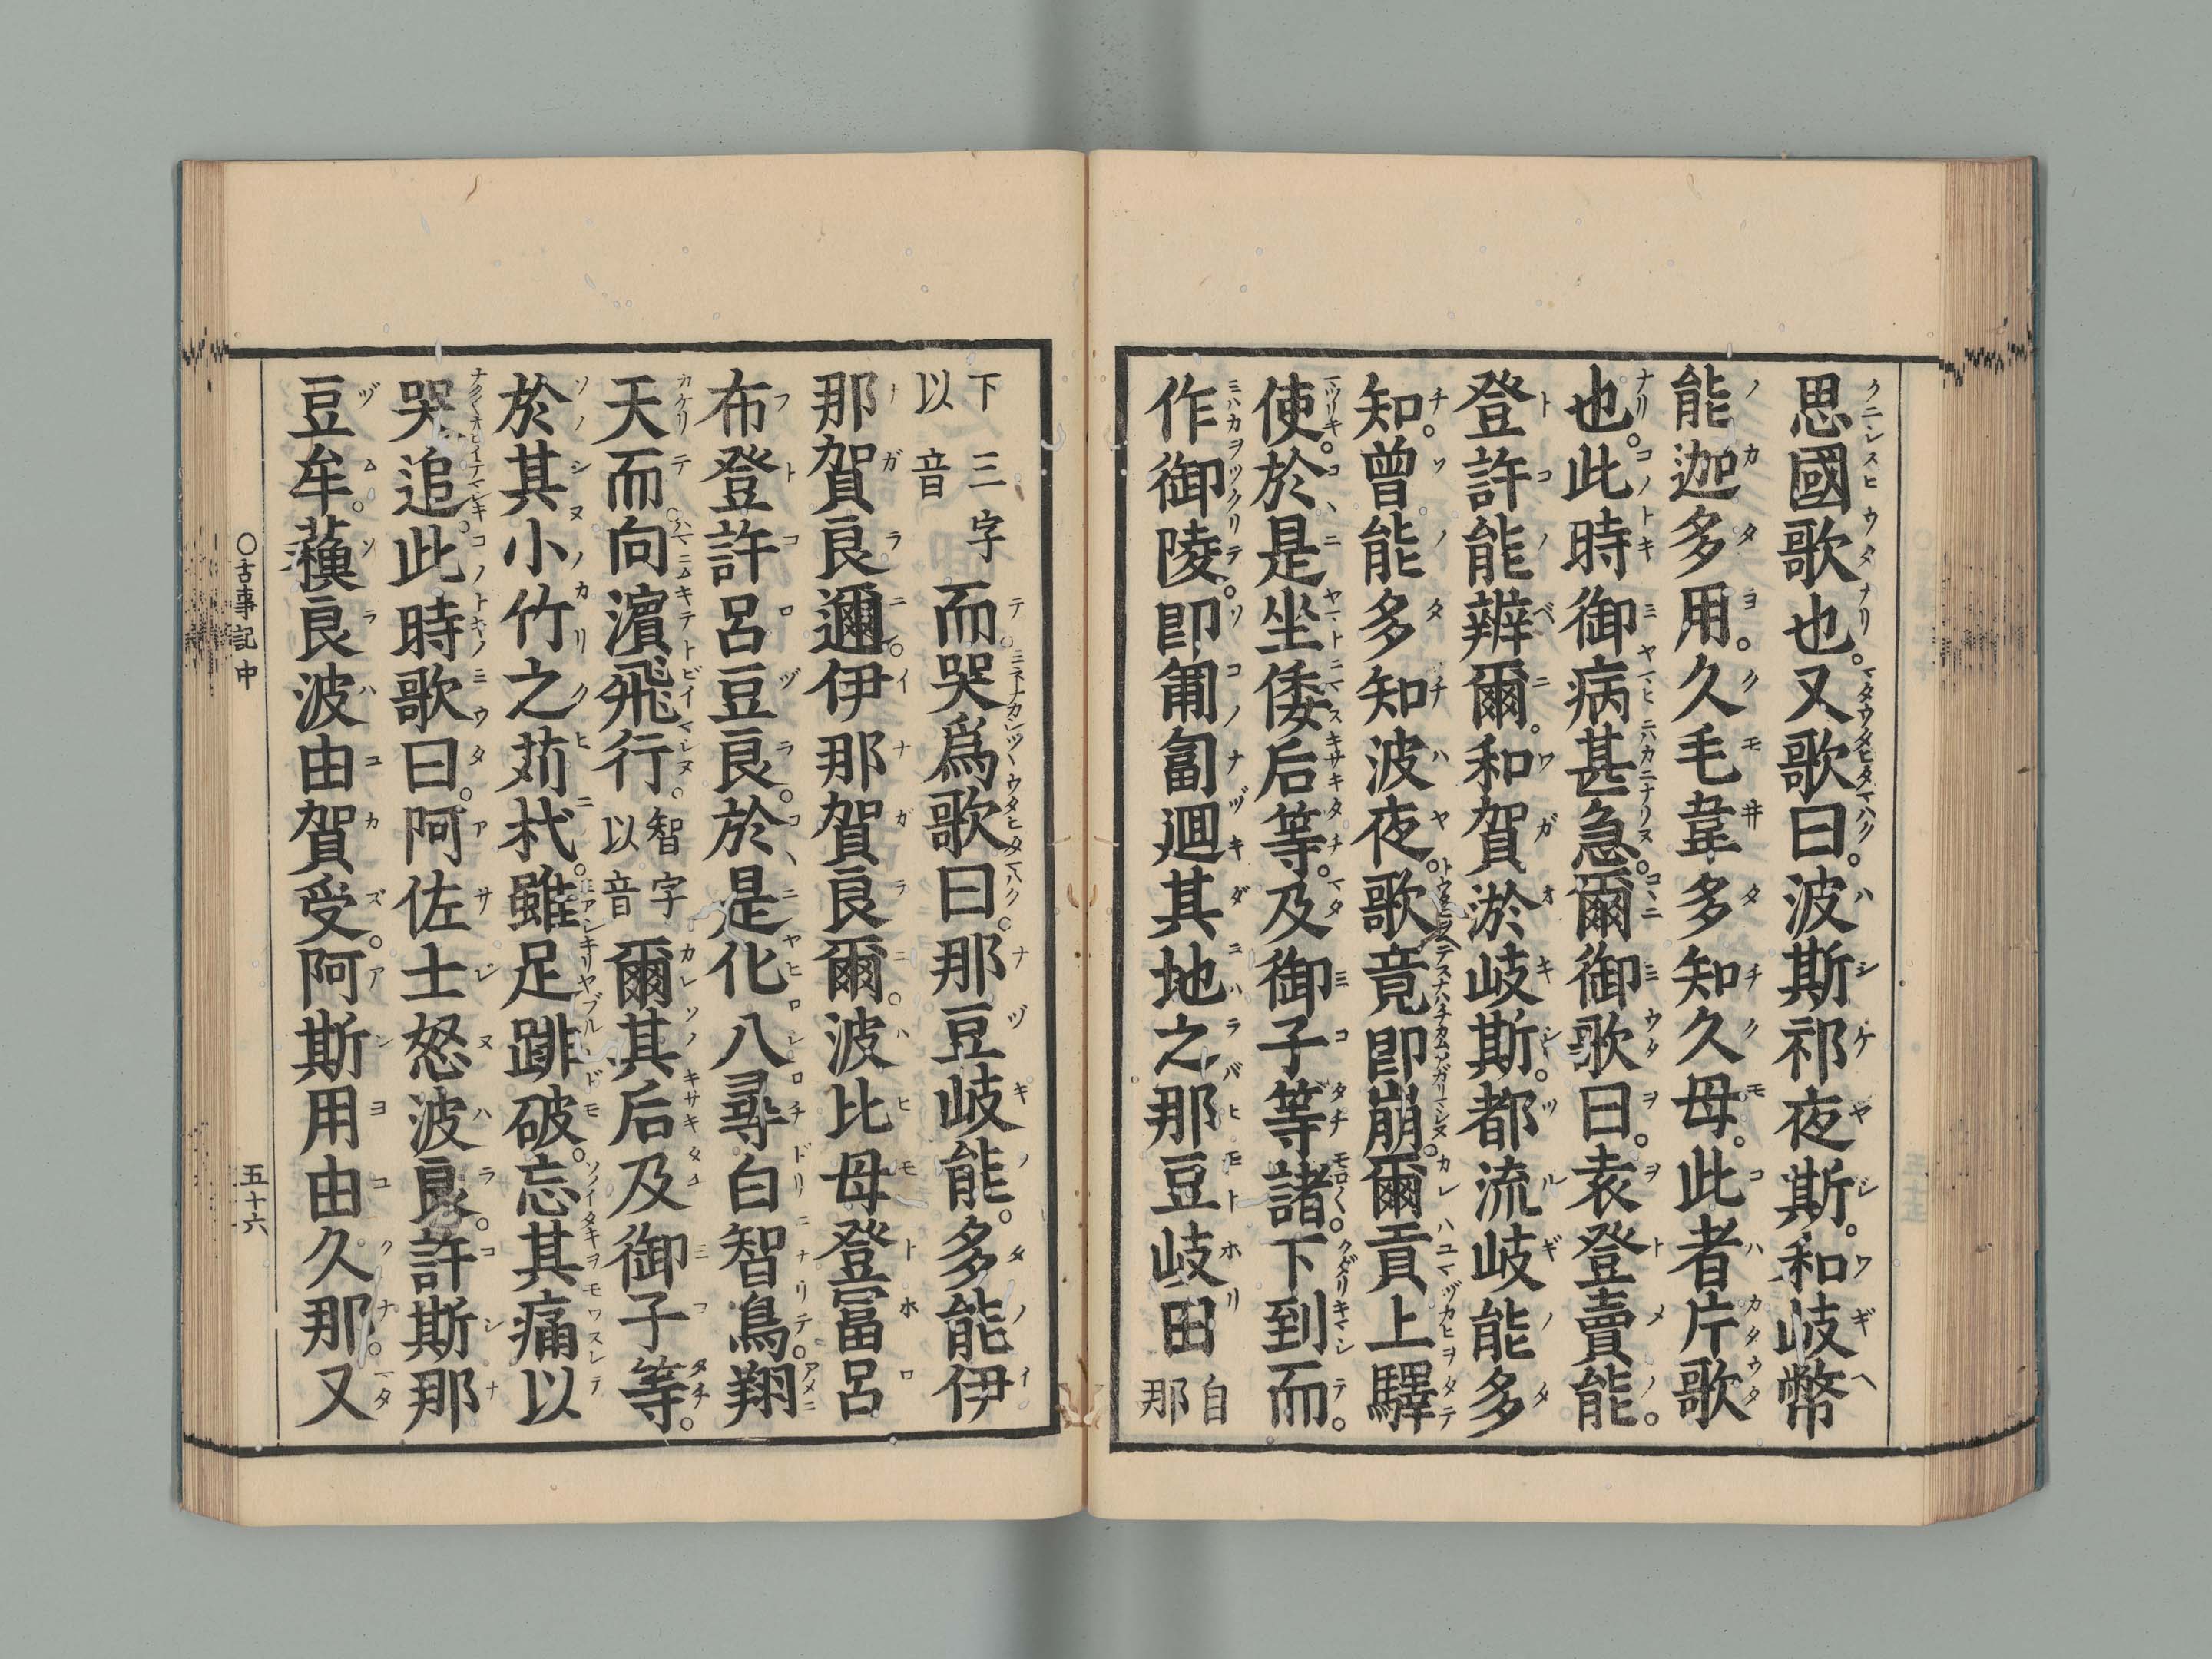 思國歌也。又歌曰。波斯祁夜斯。和岐幣
能迦多用。久毛韋多知久母。此者片歌
也。此時御病甚急。爾御歌曰。袁登賣能。
登許能辨爾。和賀淤岐斯。都流岐能多
知。曾能多知波夜。歌竟即崩。爾貢上驛
使。於是坐倭后等。及御子等諸。下到而。
作御陵。即匍匐廻其地之那豆岐田自那
下三字以音而哭爲歌曰。那豆岐能。多能伊
那賀良邇。伊那賀良爾。波比母登富呂
布登許呂豆良。於是化八尋白智鳥。翔
天而。向濵飛行。智字以音爾其后及御子等。
於其小竹之苅杙。雖足䠊破。忘其痛以
哭追。此時歌曰。阿佐士怒波良。許斯那
豆牟。蘓良波由賀受。阿斯用由久那。又
○古事記中 五十六